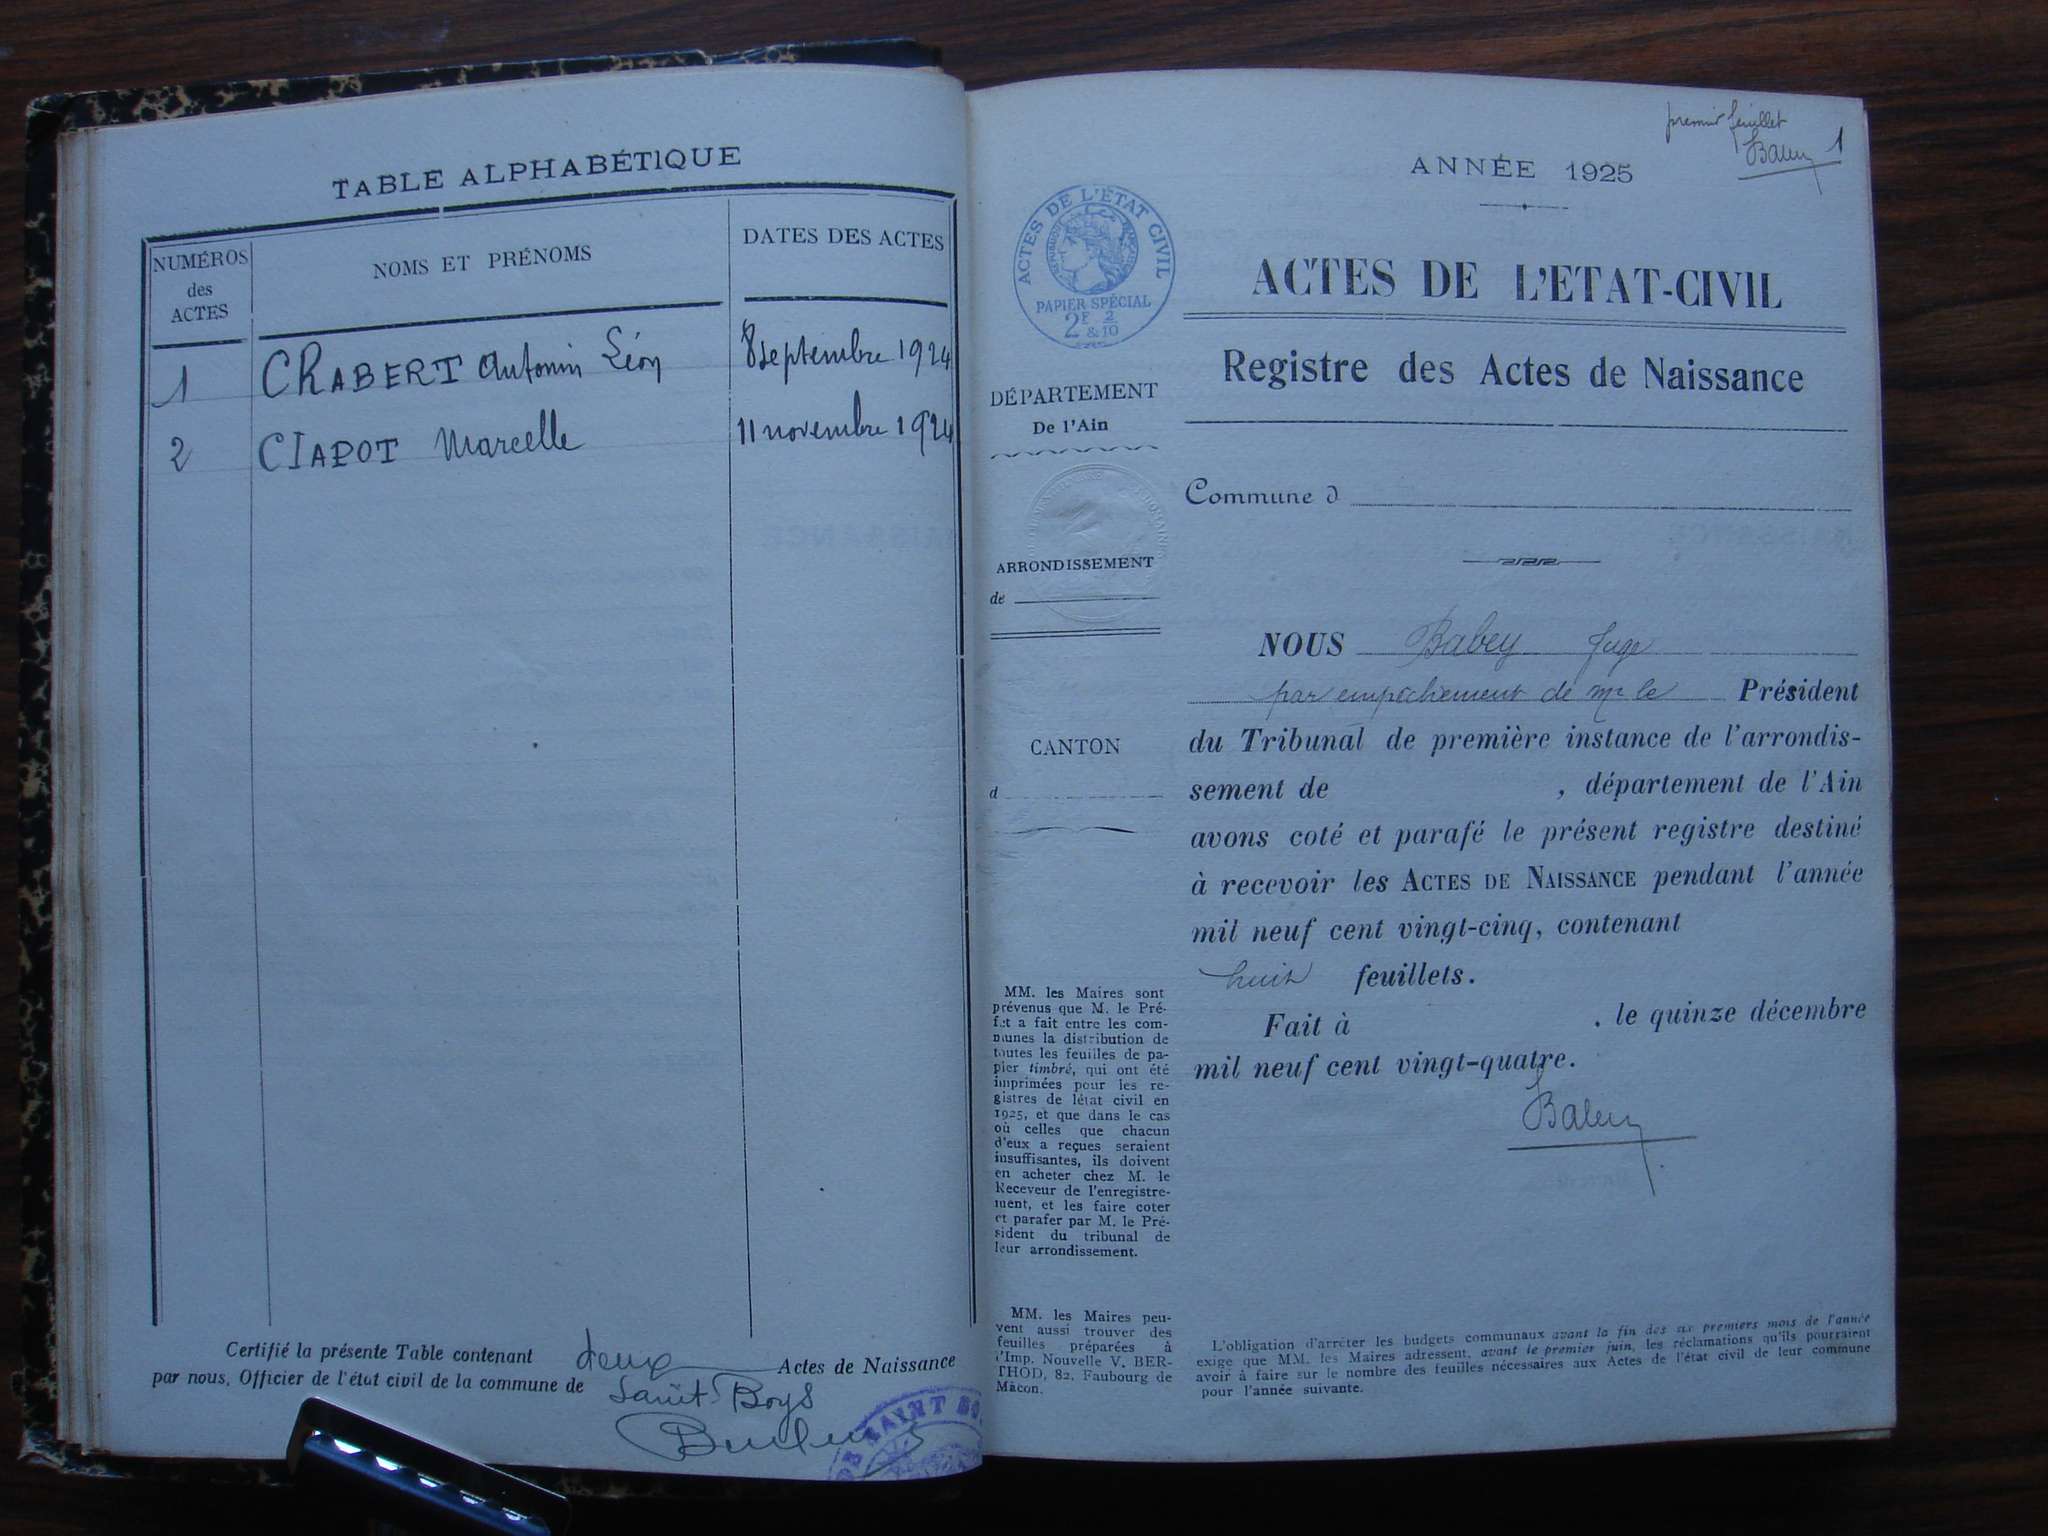 TABLE ALPHABÉTIQUE
NUMÉROS
des
ACTES
NOMS ET PRÉNOMS
DATES DES ACTES
1 CHABERT Antonin Léon 8 septembre 1924
2 CLAPOT Marcelle 11 novembre 1924
Certifié la présente Table contenant deux Actes de Naissance
par nous, Officier de l'état civil de la commune de Saint-Boys
DE SAINT BO
premier feuillet
1
ANNÉE 1925
ACTES DE L'ÉTAT CIVIL
PAPIER SPÉCIAL
2F 2
& 10
ACTES DE L'ETAT-CIVIL
Registre des Actes de Naissance
DÉPARTEMENT
De l'Ain
Commune d
ARRONDISSEMENT
de
CANTON
d
NOUS Babey Juge
par empêchement de Mr le Président
du Tribunal de première instance de l'arrondis-
sement de , département de l'Ain
avons coté et parafé le présent registre destiné
à recevoir les ACTES DE NAISSANCE pendant l'année
mil neuf cent vingt-cinq, contenant
huit feuillets.
Fait à , le quinze décembre
mil neuf cent vingt-quatre.
Babey
MM. les Maires sont
prévenus que M. le Pré-
fet a fait entre les com-
munes la distribution de
toutes les feuilles de pa-
pier timbré, qui ont été
imprimées pour les re-
gistres de létat civil en
1925, et que dans le cas
où celles que chacun
d'eux a reçues seraient
insuffisantes, ils doivent
en acheter chez M. le
Receveur de l'enregistre-
ment, et les faire coter
et parafer par M. le Pré-
sident du tribunal de
leur arrondissement.
MM. les Maires peu-
vent aussi trouver des
feuilles préparées à
l'Imp. Nouvelle V. BER-
THOD, 82, Faubourg de
Mâcon.
L'obligation d'arrêter les budgets communaux avant la fin des six premiers mois de l'année
exige que MM. les Maires adressent, avant le premier juin, les réclamations qu'ils pourraient
avoir à faire sur le nombre des feuilles nécessaires aux Actes de l'état civil de leur commune
pour l'année suivante.